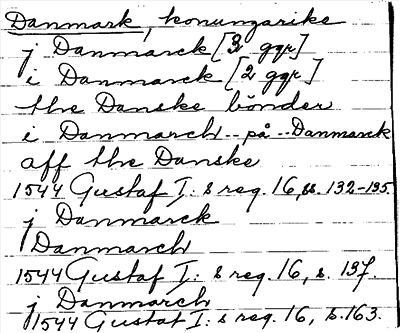 Danmark, konungarike
j Danmarck [3 ggr]
i Danmarck [2 ggr]
the Danske bönder
i Danmarch - - på - - Danmarck
aff the Danske
1544 Gustaf I: s reg. 16, ss. 132-135.
j Danmarck
Danmarch
1544 Gustaf I: s reg. 16, s. 137.
j Danmarch
1544 Gustaf I: s reg. 16, s. 163.